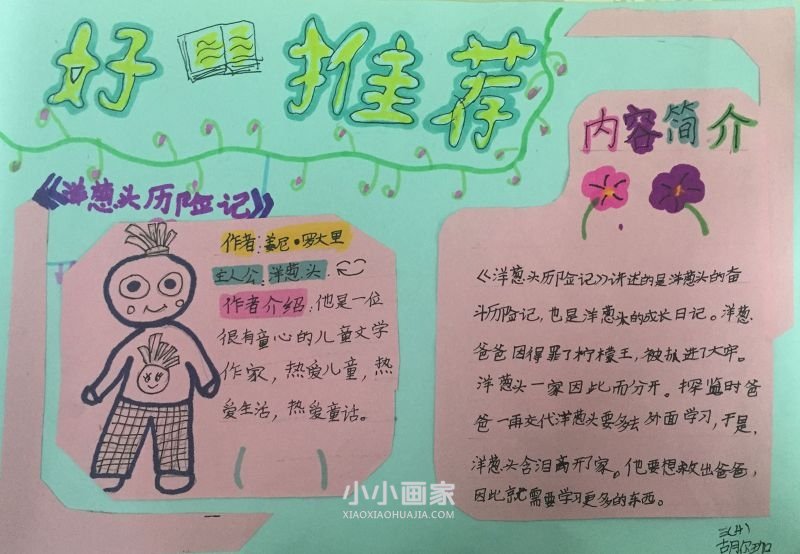 好 推荐
《洋葱头历险记》
作者:姜尼·罗大里
主人公:洋葱头.
作者介绍:他是一位
很有童心的儿童文学
作家，热爱儿童，热
爱生活，热爱童话。
内容简介
《洋葱头历险记》讲述的是洋葱头的奋
斗历险记，也是洋葱头的成长日记。洋葱
爸爸因得罪了柠檬王，被抓进了大牢。
洋葱头一家因此而分开。探监时爸
爸一再交代洋葱头要多去外面学习，于是，
洋葱头含泪离开了家。他要想救出爸爸，
因此就需要学习更多的东西。
小小画家
XIAOXIAOHUAJIA.COM